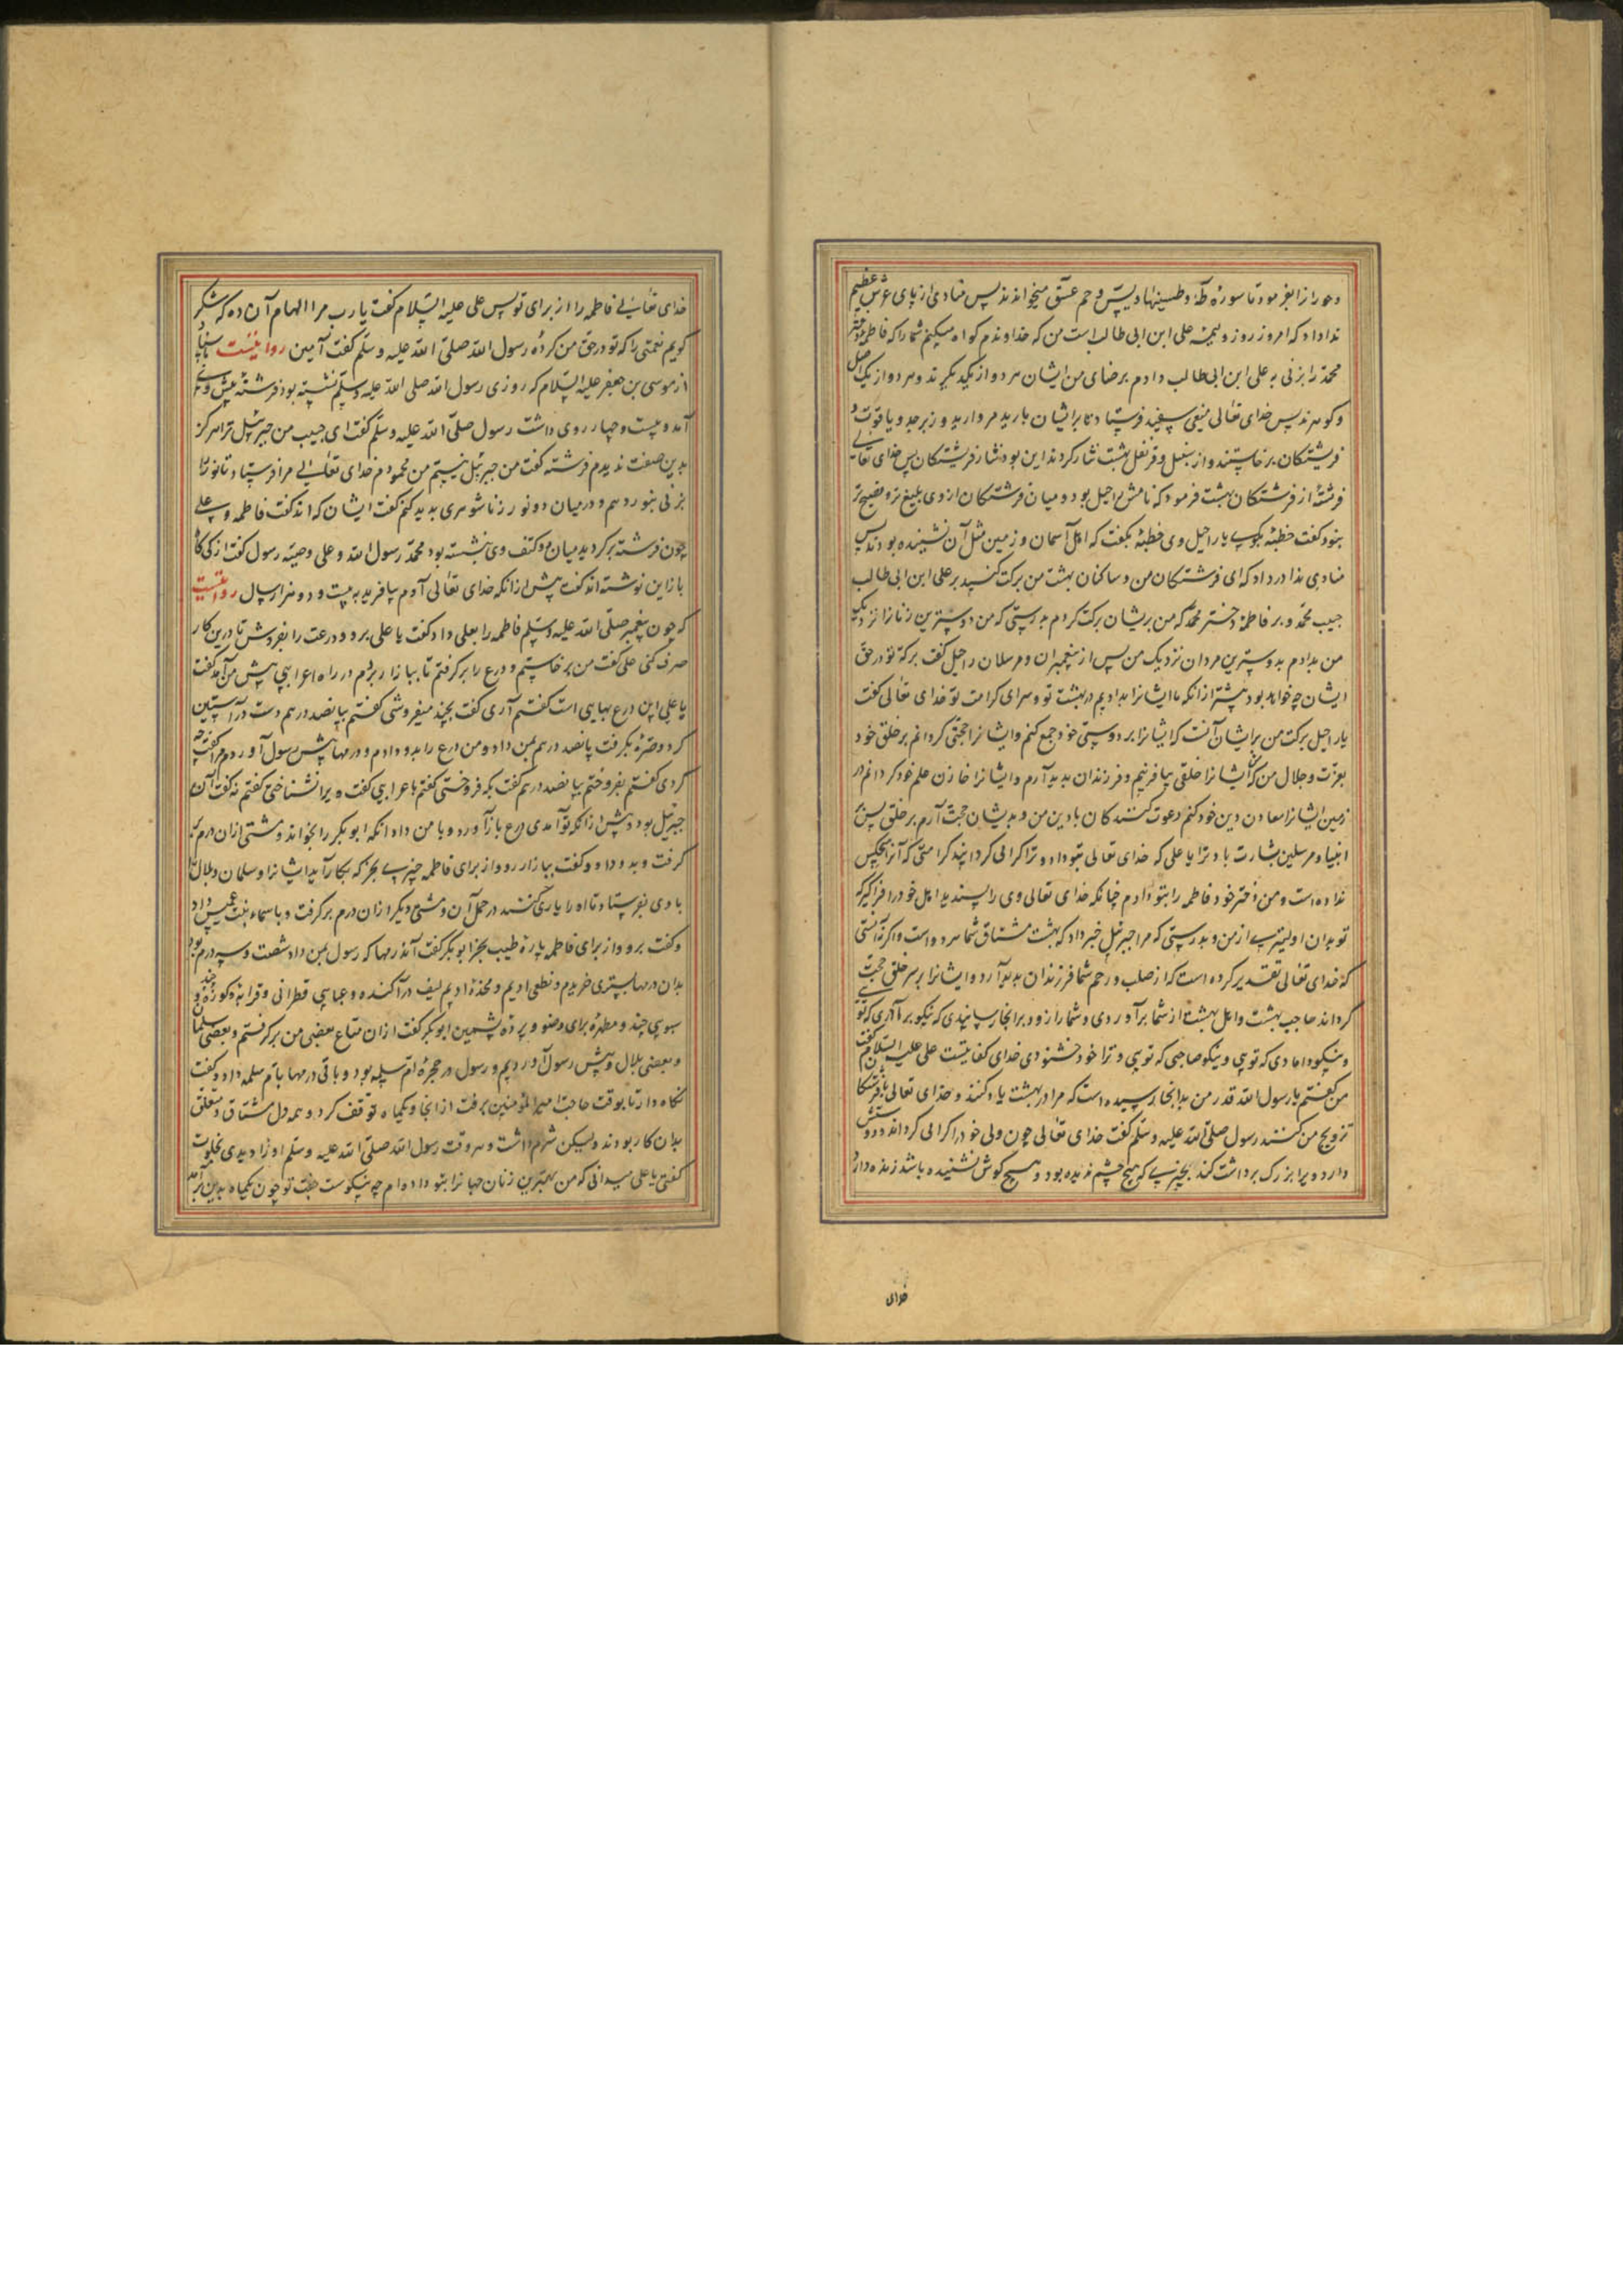 و حورا را بفرمود تا سورهٔ طه و طسینها و یس و حم عسق میخواندند پس منادی از پای عرش عظیم
ندا داد که امروز روز ولیمه علی ابن ابی طالب است من که خداوندم کواه میکنم شما را که فاطمه دختر
محمد را بزنی به علی ابن ابی طالب دادم برضای من ایشان هر دو از یکدیگرند و هر دو از یک اصل
و کوهرند پس خدای تعالی میغی سپید فرستاد تا بر ایشان بارید مروارید و زبرجد و یاقوت و
فرشتکان برخاستند و از سنبل و قرنفل بهشت نثار کردند این بود نثار فرشتکان پس خدای تعالی
فرشتهٔ از فرشتکان بهشت فرمود که نامش راحیل بود و میان فرشتکان از وی بلیغ تر و فصیح تر
نبود گفت خطبهٔ بکوی یا راحیل وی خطبهٔ بگفت که اهل آسمان و زمین مثل آن نشنیده بودند پس
منادی ندا در داد که ای فرشتکان من و ساکنان بهشت من برکت کنید بر علی ابن ابی طالب
حبیب محمد و بر فاطمه دختر محمد که من بریشان برکت کردم بدرستی که من دوسترین زنانرا نزدیک
من بدادم بدوسترین مردان نزدیک من پس از پیغمبران و مرسلان راحیل گفت برکة تو در حق
ایشان چه خواهد بود بیشتر از انکه ما ایشانرا بدادیم در بهشت تو و سرای کرامت تو خدای تعالی گفت
یا راحیل برکت من بر ایشان آنست که ایشانرا بر دوستی خود جمع کنم و ایشانرا حجتی کردانم بر خلق خود
بعزت و جلال من که از ایشانرا خلقی بیافرینم و فرزندان پدید آرم و ایشانرا خازن علم خود کردانم در
زمین ایشانرا معادن دین خود کنم دعوت کنندکان با دین من و بدیشان حجت آرم بر خلق پس از
انبیا و مرسلین بشارت باد ترا یا علی که خدای تعالی بتو داد و ترا کرامی کردانید کرامتی که آنرا بهیچکس
نداده است و من دختر خود فاطمه را بتو دادم چنانکه خدای تعالی وی را پسندید اهل خود را فراگیر که
تو بدان اولیتری از من و بدرستی که مرا جبرئیل خبر داد که بهشت مشتاق شما هر دو است و اگر نه آنستی
که خدای تعالی تقدیر کرده است که از صلب و رحم شما فرزندان پدید آرد و ایشانرا بر سر خلق حجت
کرداند صاحب بهشت و اهل بهشت از شما برآوردی و شما را زود بر انجا رسانیدی که نیکو برادری که تو
و نیکو دامادی که تویی و نیکو صاحبی که تویی و ترا خود خشنودی خدای کفایتست علی علیه السلام گفت
من گفتم یا رسول الله قدر من بدانجا رسیده است که مرا در بهشت یاد کنند و خدای تعالی با فرشتکان
تزویج من کنند رسول صلی الله علیه و سلم گفت خدای تعالی چون ولی خود را گرامی کرداند و دوستش
دارد ویرا بزرک برداشت کند بچیزی که هیچ چشم ندیده بود و هیچ کوش نشنیده باشد زنده دارد
خدای
خدای تعالی فاطمه را از برای تو پس علی علیه السلام گفت یا رب مرا الهام آن ده که شکر
کویم نعمتی را که تو در حق من کردهٔ رسول الله صلی الله علیه و سلم گفت آمین روایتست باسناد
از موسی بن جعفر علیه السلام که روزی رسول الله صلی الله علیه و سلم نشسته بود فرشته پیش وی
آمد و بیست و چهار روی داشت رسول صلی الله علیه و سلم گفت ای حبیب من جبرئیل ترا هرگز
بدین صفت ندیدم فرشته گفت من جبرئیل نیستم من محمودم خدای تعالی مرا فرستاد تا نور را
بزنی بنور دهم و در میان دو نور زناشوهری پدید کنم گفت ایشان که اند گفت فاطمه و علی
چون فرشته برکردید میان دو کتف وی نبشته بود محمد رسول الله و علی وصیه رسول گفت از کی کاه
باز این نوشته اند گفت پیش از انکه خدای تعالی آدم بیافرید به بیست و دو هزار سال روایتست
که چون پیغمبر صلی الله علیه و سلم فاطمه را بعلی داد گفت یا علی برو و درعت را بفروش تا درین کار
صرف کنی علی گفت من برخاستم و درع را برگرفتم تا ببازار بردم در راه اعرابیی پیش من آمد گفت
یا علی این درع بهایی است گفتم آری گفت بچند میفروشی گفتم بپانصد درهم دست در آستین
کرد و صرهٔ بگرفت پانصد درهم بمن داد و من درع را بدو دادم و درمها پیش رسول آوردم مرا گفت چه
کردی گفتم بفروختم بپانصد درهم گفت بکه فروختی گفتم باعرابی گفت ویرا نشناختی گفتم نه گفت آن
جبرئیل بود و پیش از انکه تو آمدی درع باز آورد و با من داد انکه ابوبکر را بخواند و مشتی ازان درم بر
گرفت و بدو داد و گفت ببازار رو و از برای فاطمه چیزی بخر که بکار آید ایشانرا و سلمان و بلال را
با وی بفرستاد تا او را یاری کنند در حمل آن و مشتی دیگر ازان درم برگرفت و باسماء بنت عمیس داد
و گفت برو و از برای فاطمه پارهٔ طیب بخر ابوبکر گفت آن درمها که رسول بمن داد شصت و سه درم بود
بدان درمها بستری خریدم و نطعی ادیم و مخدهٔ ادیم لیف درآکنده و عبایی قطرانی و قرابهٔ و کوزهٔ چند و
سبویی چند و مطهرهٔ برای وضو و پردهٔ پشمین ابوبکر گفت ازان متاع بعضی من برگرفتم و بعضی سلمان
و بعضی بلال و پیش رسول آوردیم و رسول در حجرهٔ ام سلمه بود و باقی درمها بام سلمه داد و گفت
نگاه دار تا بوقت حاجت امیرالمؤمنین برفت از انجا و یکماه توقف کرد و همه دل مشتاق و متعلق
بدان کار بودند ولیکن شرم داشت و هر وقت رسول الله صلی الله علیه و سلم او را دیدی بخلوت
گفتی یا علی میدانی که من بهترین زنان جهانرا بتو داده ام چه نیکوست جفت تو چون یکماه بدین برآمد